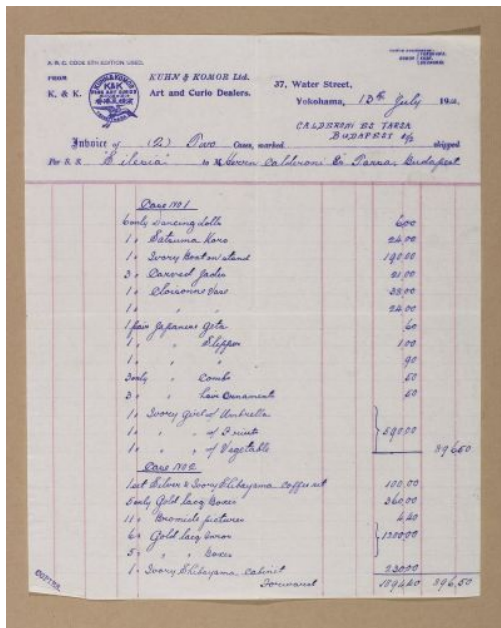 A.B.C. CODE 5TH EDITION USED.
FROM
K. & K.
KUHN & KOMOR
K&K
FINE ART CURIOS
KUHN & KOMOR Ltd.
Art and Curio Dealers.
37, Water Street,
Yokohama, 13th July 19
CALDERONI ES TARSA
BUDAPEST
Invoice of (2) Two Cases, marked shipped
Per S. S. "Silesia" to M Herren Calderoni Es Tarsa, Budapest
Case No 1
6 only Dancing dolls 6.00
1 " Satsuma Koro 24.00
1 " Ivory Boat on stand 190.00
3 " Carved Jades 21.00
1 " Cloisonne Vase 35.00
1 " " " 24.00
1 pair Japanese Geta .60
1 " " Slipper 1.00
1 " " " .90
3 only " Combs .50
3 " " hair Ornaments .50
1 " Ivory Girl of Umbrella
1 " " " of Fruits 590.00
1 " " " of Vegetable 896.50
Case No 2
1 set Silver & Ivory Shibayama coffee set 100.00
5 only Gold lacq Boxes 360.00
11 " Bromide pictures 4.40
6 " Gold lacq Inros
5 " " " Boxes 1200.00
1 " Ivory Shibayama cabinet 230.00
Forward 1894.40 896.50